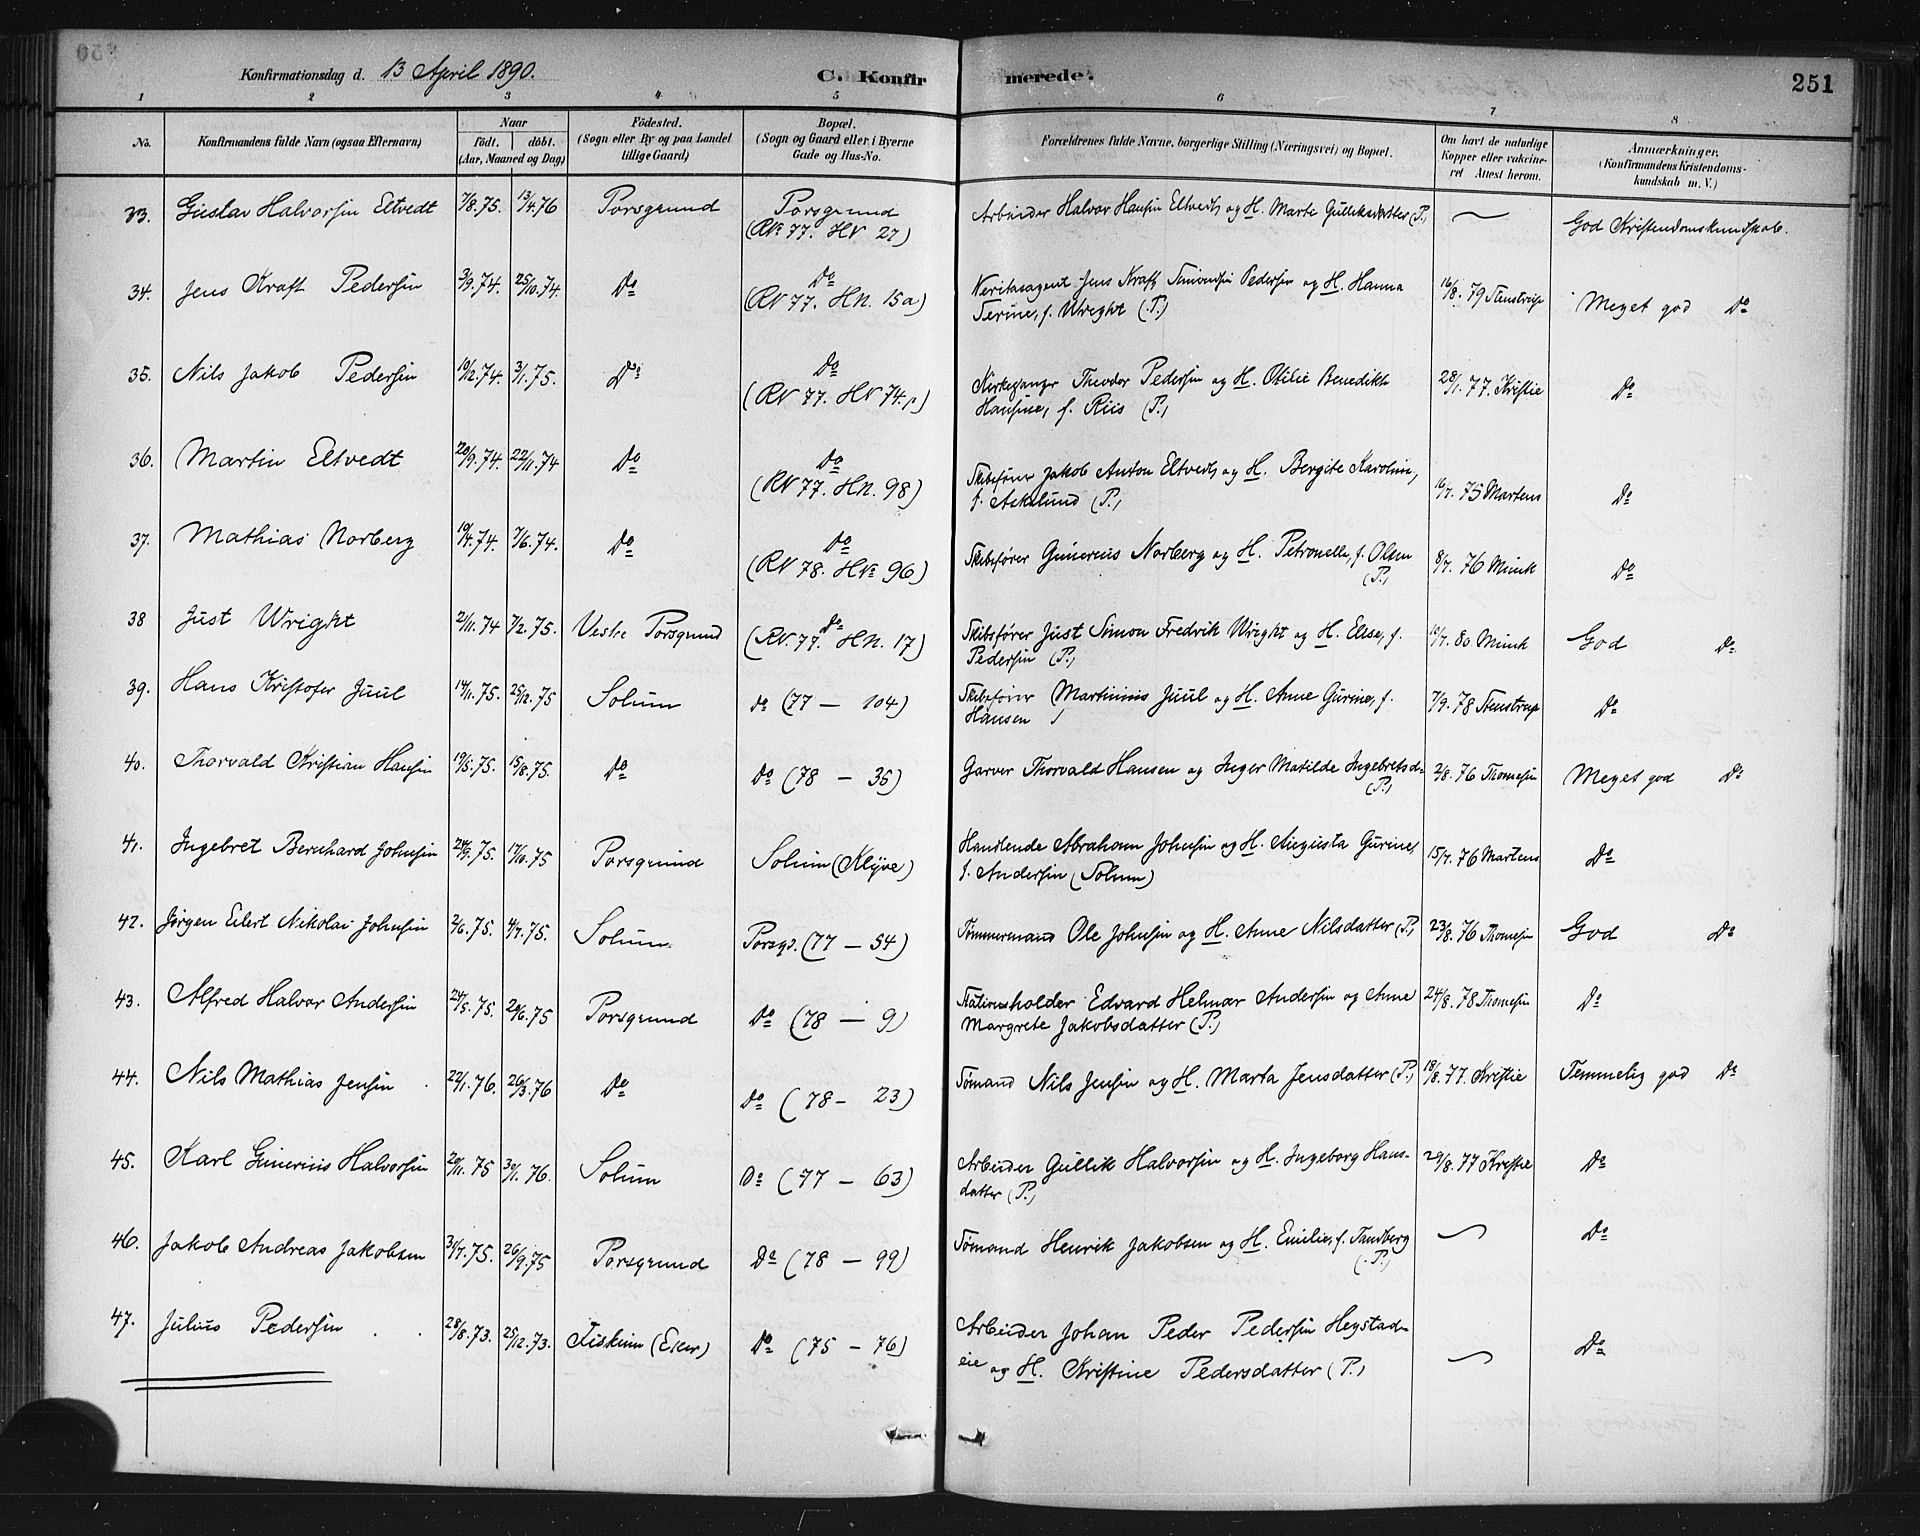 Konfirmationsdag d. 13 April 1890. C. Konfirmerede. 251
1 2 3 4 5 6 7 8
No. Konfirmandens fulde Navn (ogsaa Efternavn) Naar Födt. döbt. (Aar, Maaned og Dag) Födested. (Sogn eller By og paa Landet tillige Gaard) Bopæl. (Sogn og Gaard eller i Byerne Gade og Hus-No. Forældrenes fulde Navne, borgerlige Stilling (Næringsvei) og Bopæl. Om havt de naturlige Kopper eller vakcineret Attest herom. Anmærkninger. (Konfirmandens Kristendomskundskab m. V.)
33. Gustav Halvorsen Eltvedt 7/8.75. 13/4.76 Porsgrund Porsgrund
(RNo 77. HN 27) Arbeider Halvor Hansen Eltvedt, og H. Marte Gulliksdatter (P.) — God Kristendomskundskab.
34. Jens Kraft Pedersen 3/9.74. 25/10.74. Do Do
(RN 77. HN. 15a) Veritasagent Jens Kraft Simonsen Pedersen og H. Hanna
Serine, f. Wright (P.) 16/8.79 Stenstrup Meget god Do
35. Nils Jakob Pedersen 10/12.74. 3/1.75. Do Do
(RN 77. HN 74.) Kirkesanger Theodor Pedersen og H. Otilie Benedikte
Hansine, f. Riis (P.) 28/1.77. Kristie Do
36. Martin Eltvedt 20/9.74. 22/11.74 Do Do
(RN 77. HN. 98) Skibsfører Jakob Anton Eltvedt, og H. Bergite Karoline,
f. Asklund (P.) 16/7.75 Martens Do
37. Mathias Norberg 19/4.74. 7/6.74. Do Do
(RN 78. HNo 96) Skibsfører Gunerius Norberg og H. Petronelle, f. Olsen
(P.) 8/7.76 Munk Do
38 Just Wright 2/11.74 7/2.75. Vestre Porsgrund Do
(RN. 77. HN. 17) Skibsfører Just Simon Fredrik Wright og H. Elise, f.
Pedersen (P.) 10/7.80 Munk God Do
39. Hans Kristofer Juul 14/11.75. 25/12.75 Solum Do (77 — 104) Skibsfører Martinius Juul og H. Anne Gurine, f.
Hansen 7/9.78 Stenstrup Do
40. Thorvald Kristian Hansen 19/5.75. 15/8.75. Do Do (78 — 35) Garver Thorvald Hansen og Inger Matilde Ingebretsd.
(P.) 2/8.76 Thomesen Meget god Do
41. Ingebret Bernhard Johnsen 24/9.75. 17/10.75 Porsgrund Solum (Klyve) Handlende Abraham Johnsen og H. Augusta Gurine,
f. Andersen (Solum) 15/7.76 Martens Do
42. Jørgen Eilert Nikolai Johnsen 2/6.75. 4/7.75. Solum Porsgr. (77 — 54) Tømmermand Ole Johnsen og H. Anne Nilsdatter (P.) 23/8.76 Thomesen God Do
43. Alfred Halvor Andersen 24/5.75. 20/6.75 Porsgrund Do (78 — 9) Stationsholder Edvard Helmar Andersen og Anne
Margrete Jakobsdatter (P.) 24/8.78 Thomesen Do
44. Nils Mathias Jensen 22/1.76. 26/3.76 Do Do (78 — 23) Sømand Nils Jensen og H. Marta Jensdatter (P.) 18/8.77. Kristie Temmelig god Do
45. Karl Gunerius Halvorsen 20/11.75 30/1.76. Solum Do (77 — 63) Arbeider Gullik Halvorsen og H. Ingeborg Hans-
datter (P.) 20/8.77 Kristie Do
46. Jakob Andreas Jakobsen 31/7.75. 26/9.75 Porsgrund Do (78 — 99) Sømand Henrik Jakobsen og H. Emilie, f. Tandberg
(P.) — Do
47. Julius Pedersen 28/8.73. 25/12.73. Fiskum (Eker) Do (75 — 76) Arbeider Johan Peder Pedersen Heystad-
eie og H. Kristine Pedersdatter (P.) — Do